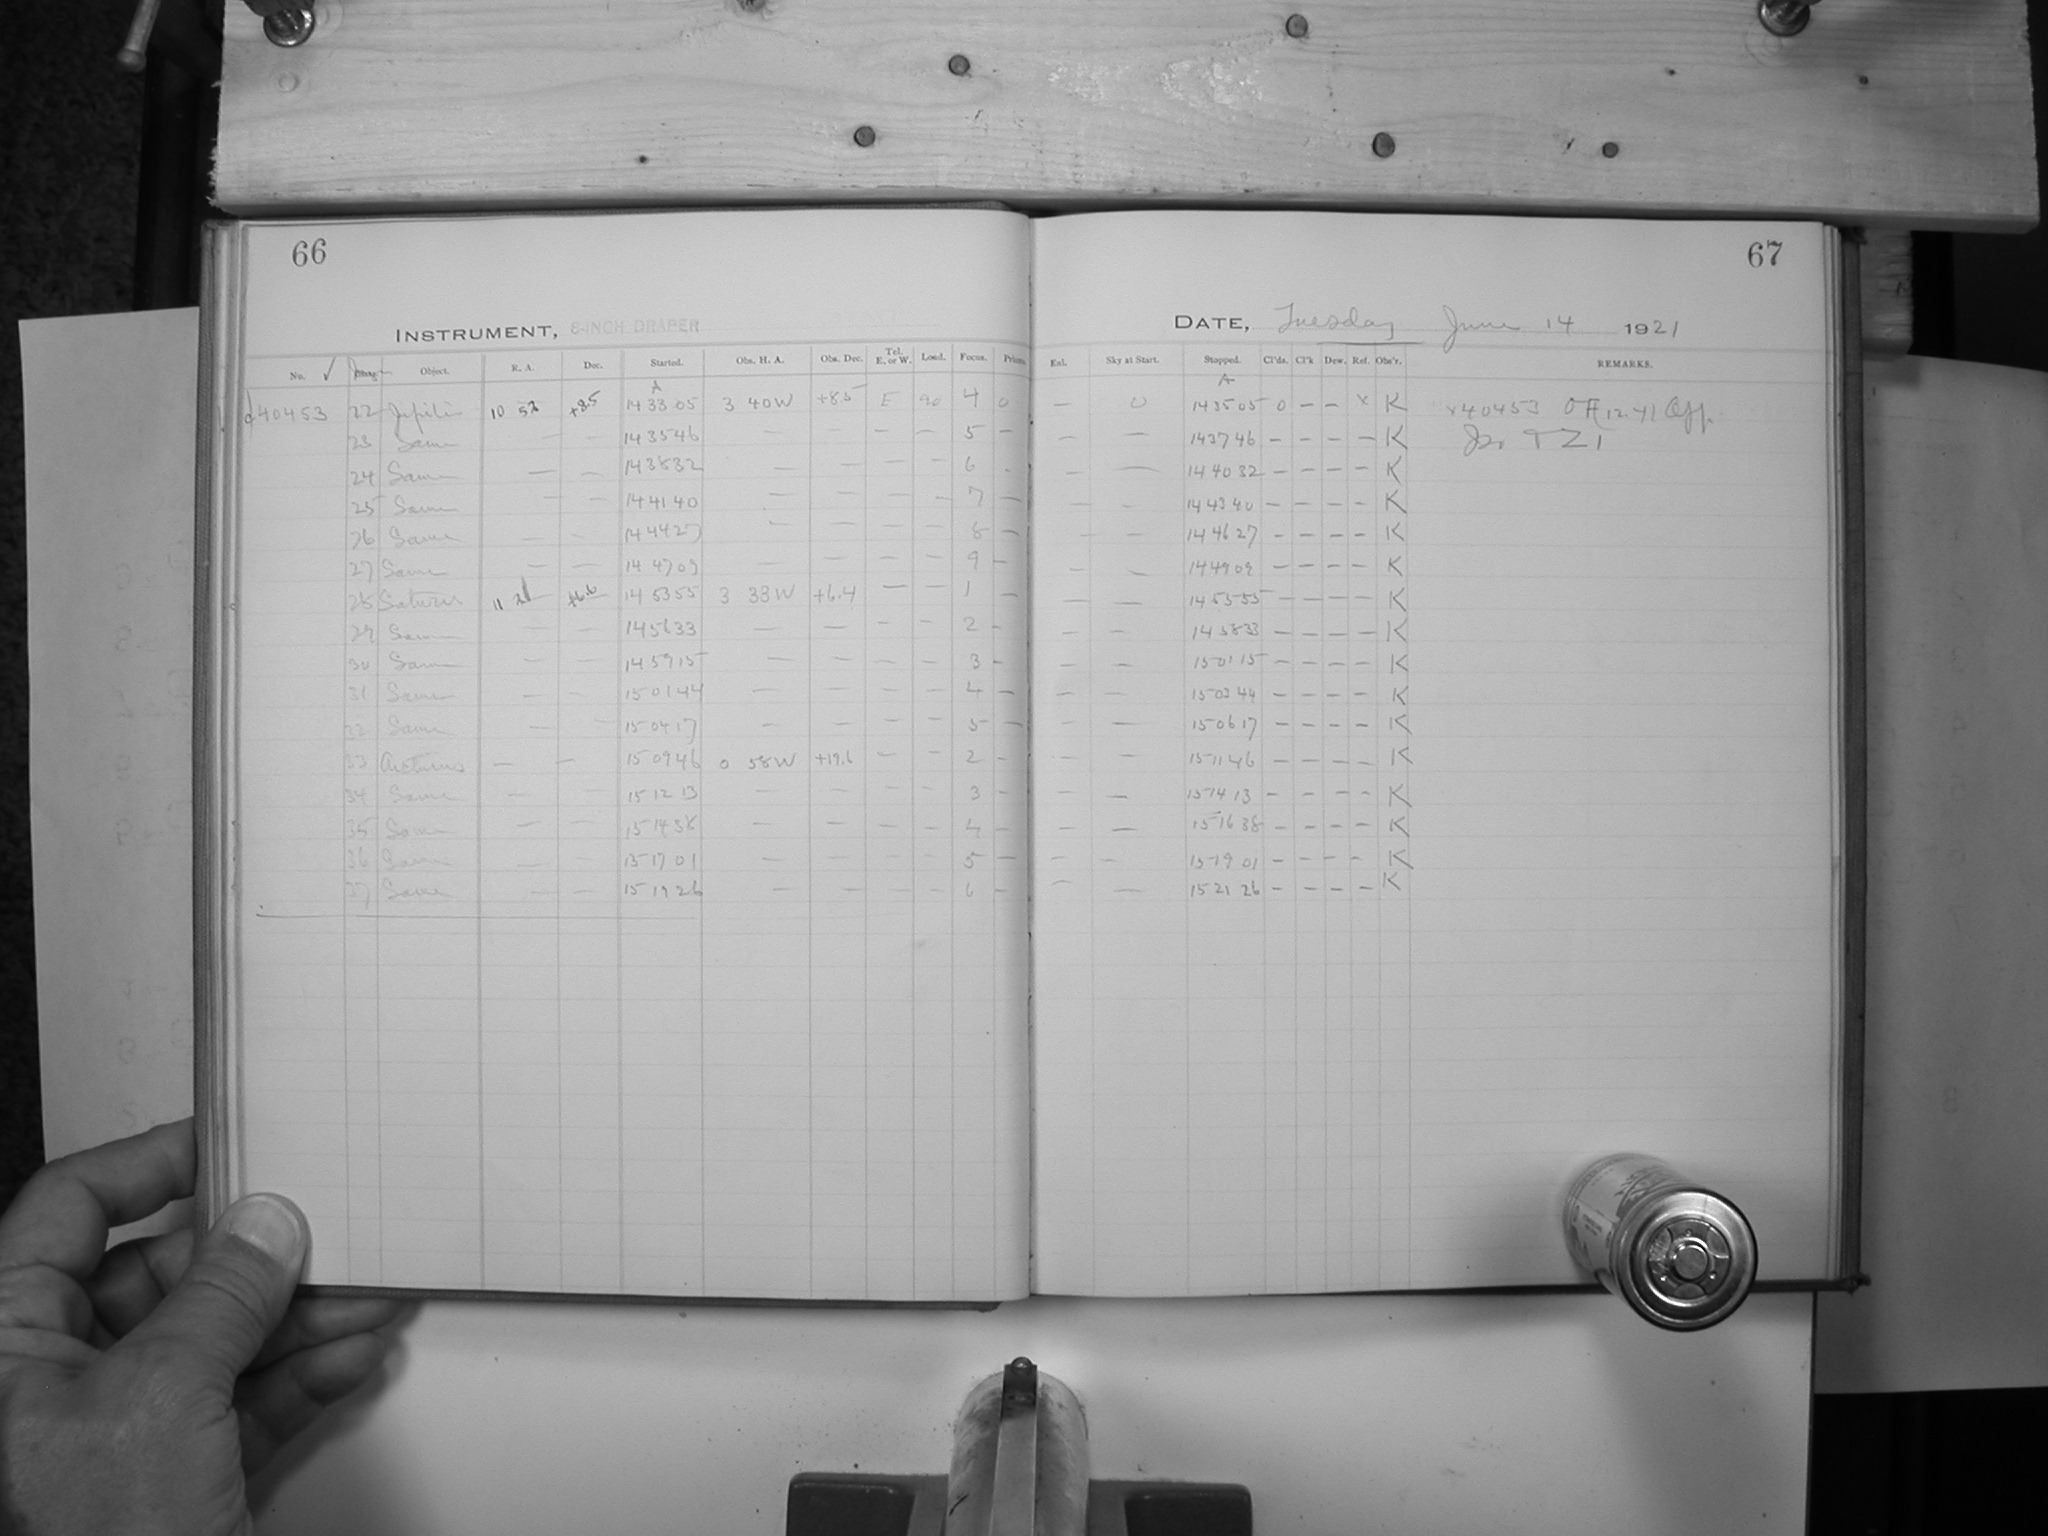 66
67
INSTRUMENT, 8-INCH DRAPER
DATE, Tuesday June 14 1921
No. ✓ Image Object. R. A. Dec. Started. Obs. H. A. Obs. Dec. Tel. E. or W. Load. Focus. Prism Enl. Sky at Start. Stopped. Cl'ds. Cl'k Dew. Ref. Obs'r. REMARKS.
A A
d40453 22 Jupiter 10 52 +8.5 14 33 05 3 40W +8.5 E 90 4 0 — 0 14 35 05 0 — — x K x40453 Off
23 Same — — 14 35 46 — — — — 5 — — — 14 37 46 — — — — K
24 Same — — 14 38 32 — — — — 6 - — — 14 40 32 — — — — K
25 Same — — 14 41 40 — — — — 7 — — - 14 43 40 — — — — K
26 Same — — 14 44 27 — — — — 8 — — — 14 46 27 — — — — K
27 Same — — 14 47 09 — — — — 9 — — — 14 49 09 — — — — K
28 Saturn 11 21 +6.6 14 53 55 3 33W +6.4 — — 1 — — — 14 55 55 — — — — K
29 Same — — 14 56 33 — — — — 2 - — — 14 58 33 — — — — K
30 Same — — 14 59 15 — — — — 3 - — — 15 01 15 — — — — K
31 Same — — 15 01 44 — — — — 4 — — — 15 03 44 — — — — K
32 Same — — 15 04 17 — — — — 5 — — — 15 06 17 — — — — K
33 Arcturus — — 15 09 46 0 58W +19.6 — — 2 - — — 15 11 46 — — — — K
34 Same — — 15 12 13 — — — — 3 - — — 15 14 13 — — — — K
35 Same — — 15 14 38 — — — — 4 - — — 15 16 38 — — — — K
36 Same — — 15 17 01 — — — — 5 — — — 15 19 01 — — — — K
37 Same — — 15 19 26 — — — — 6 - — — 15 21 26 — — — — K